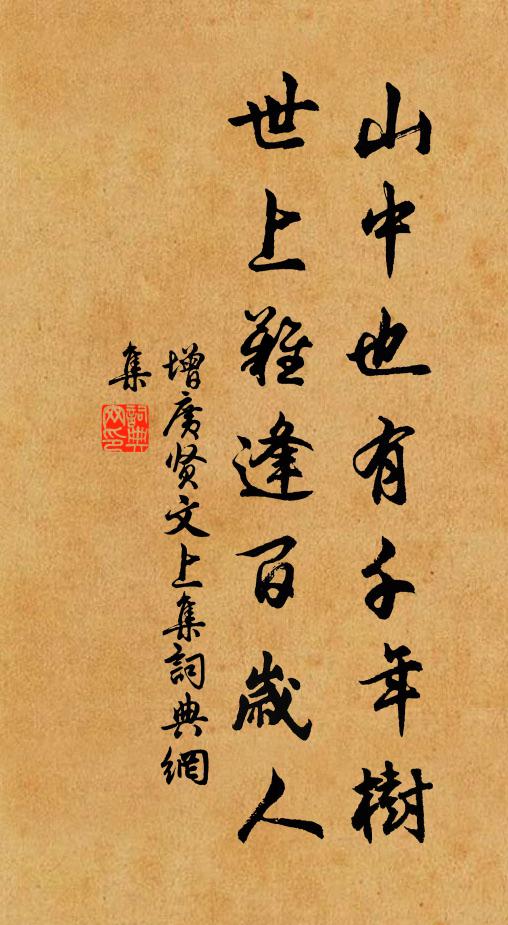 山中也有千年樹
世上難逢百歲人
增廣贤文上集詞典網
集
詞典網印